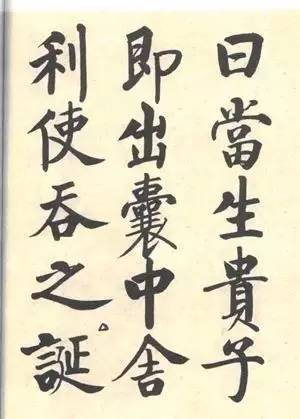 曰當生貴子
即出囊中舍
利使吞之。誕